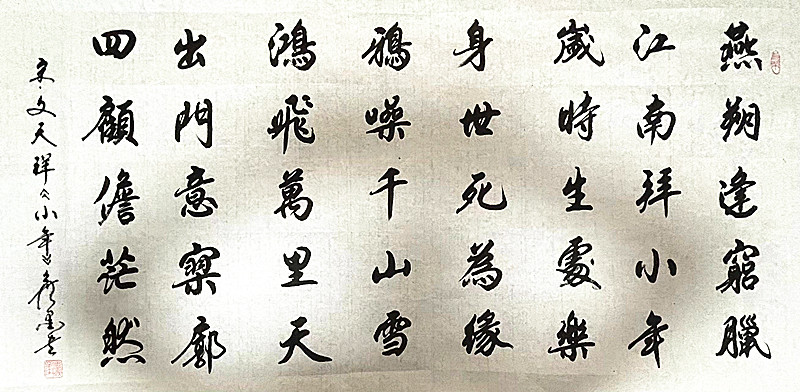 燕朔逢窮臘
江南拜小年
歲時生處樂
身世死為緣
鴉噪千山雪
鴻飛萬里天
出門意寥廓
四顧儋茫然
宋文天祥《小年》